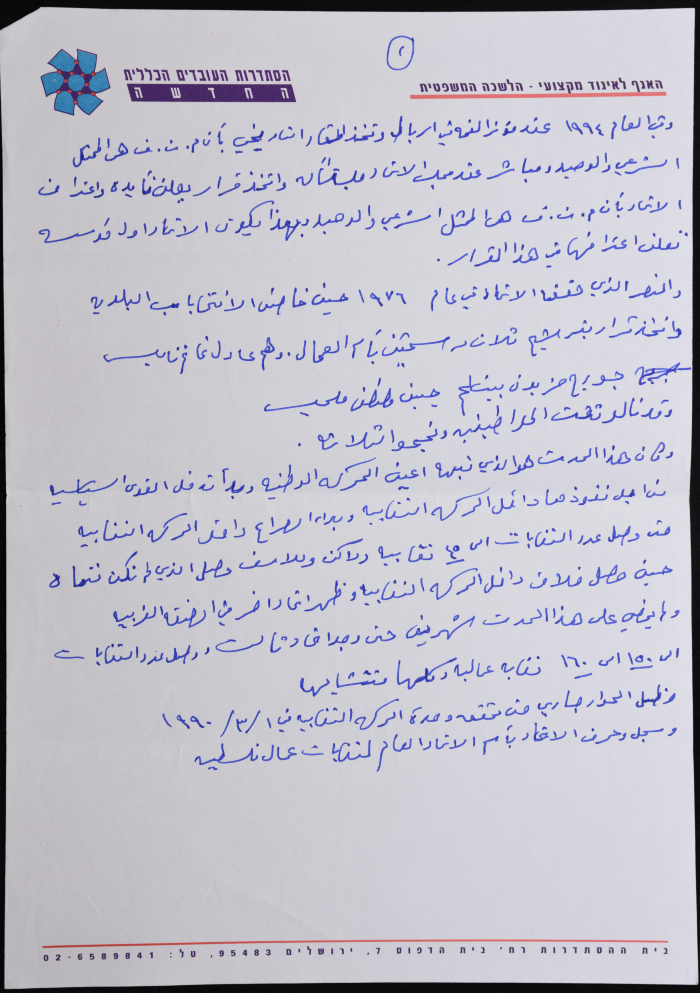 ٢
הסתדרות העובדים הכללית
החדשה
האגף לאיגוד מקצועי - הלשכה המשפטית
وفي العام ١٩٩٤ عقد مؤتر القمه في الرباط وتخذ القرار التاريخي بأن م. ت. ف هي الممثل
الشرعي والوحيد ومباشر عقد مجلس الاتحاد واتخذ قرار يعلن تأيده واعتراف
الاتحاد بأن م. ت. ف هي الممثل الشرعي والوحيد وبهذا يكون الاتحاد اول مؤسسه
تعلن اعترافها في هذا القرار.
والنصر الذي حققه الاتحاد في عام ١٩٧٦ حين خاض الانتخابات البلديه
واتخذ قرار بترشيح ثلاث مرشحين بأسم العمال. وهم عادل غانم نابلس
جورج حزبون بيتلحم حسين
وقدنالو تحت الحراطيفيه ونجحوا ثلاثته.
وكان هذا الحدث هو الذي نبهه اعين الحركه الوطنيه وبدأ تدخل القوى السياسيه
من اجل نفوذها داخل الحركه النقابيه وبداء الصراع داخل الحركه النقابيه
حتى وصل عدد النقابات الى ٤٥ نقابيه ولاكن وللاسف حصل الذي لم نكن نتمناه
حيث حصل خلاف داخل الحركه النقابيه وظهر اتحاد اخر في الضفه الغربيه
ولم يمضي على هذا الحدث شهرين حتى وجد اتحاد ثالث، ووصل عدد النقابات
الى ١٥٠ الى ١٦٠ نقابه عماليه وكلها متشابها
وظل الحوار جاري حتى تحققه وحدة الحركه النقابيه في ١/٣/١٩٩٠
وسجل وعرف الاتحاد بأسم الاتحاد العام لنقابات عمال فلسطين
בית ההסתדרות רח' בית הדפוס 7, ירושלים 95483, טל: 02-6589841